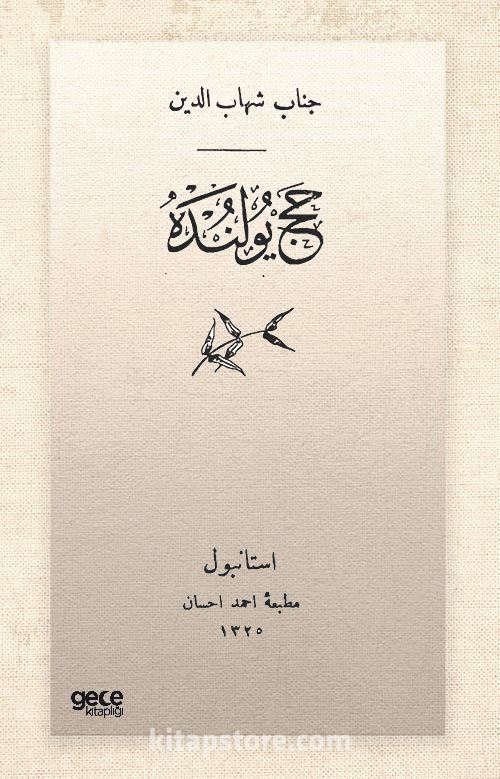 جناب شهاب الدين
حج يولنده
استانبول
مطبعهٔ احمد احسان
١٣٢٥
gece
kitaplığı
kitapstore.com